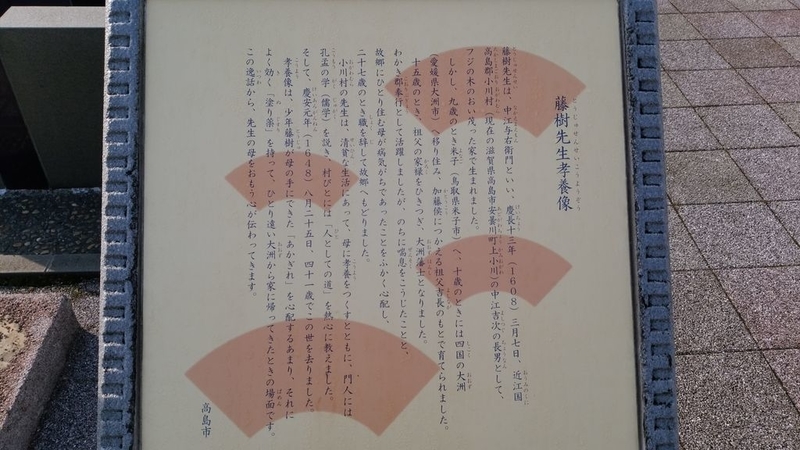 藤樹先生孝養像
とうじゅせんせいこうようぞう
藤樹先生は、中江与右衛門といい、慶長十三年（１６０８）三月七日、近江国
高島郡小川村（現在の滋賀県高島市安曇川町上小川）の中江吉次の長男として、
フジの木のおい茂った家で生まれました。
しかし、九歳のとき米子（鳥取県米子市）へ、十歳のときには四国の大洲
（愛媛県大洲市）へ移り住み、加藤侯につかえる祖父吉長のもとで育てられました。
十五歳のとき、祖父の家禄をひきつぎ、大洲藩士となりました。
わかき郡奉行として活躍しましたが、のちに喘息をこうじたことと、
故郷にひとり住む母が病気がちであったことをふかく心配し、
二十七歳のとき職を辞して故郷へもどりました。
小川村の先生は、清貧な生活にあって、母に孝養をつくすとともに、門人には
孔孟の学（儒学）を説き、村びとには「人としての道」を熱心に教えました。
そして、慶安元年（１６４８）八月二十五日、四十一歳でこの世を去りました。
孝養像は、少年藤樹が母の手にできた「あかぎれ」を心配するあまり、それに
よく効く「塗り薬」を持って、ひとり遠い大洲から家に帰ってきたときの場面です。
この逸話から、先生の母をおもう心が伝わってきます。
高島市